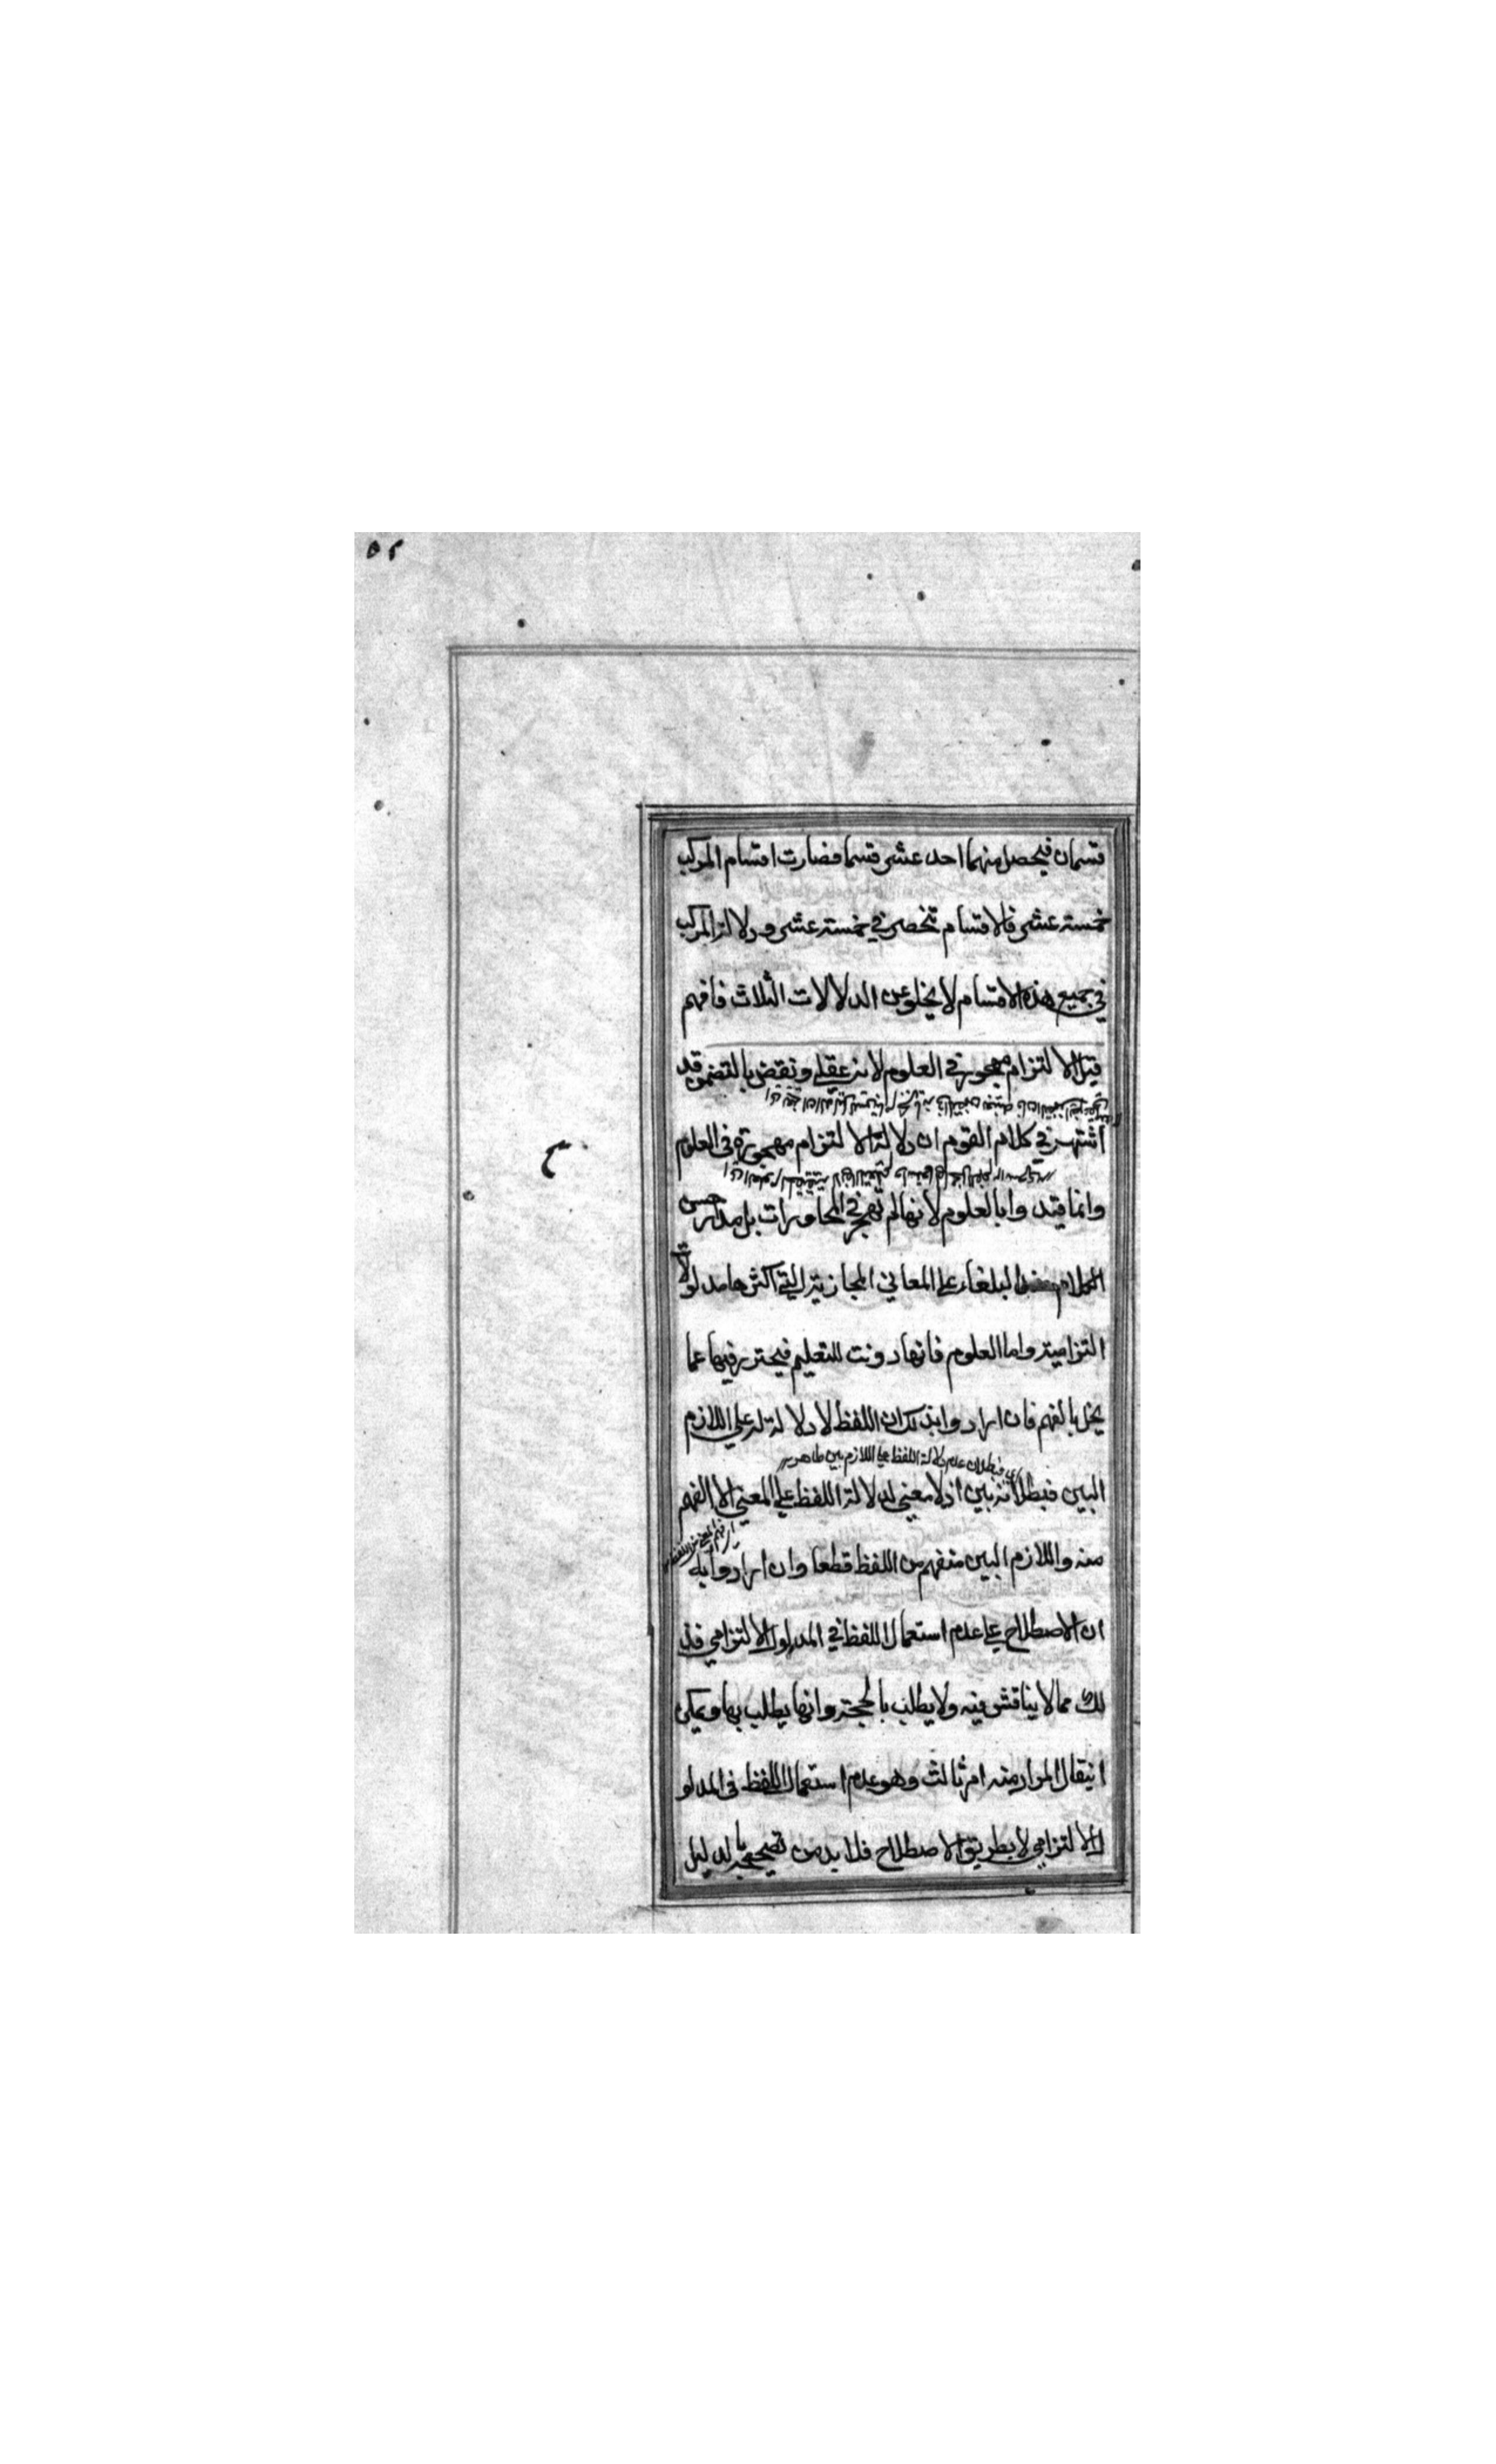 ۵۲
قسمان فيحصل منهما احد عشر قسما فصارت اقسام المركب
خمسة عشر فالاقسام تنحصر في خمسة عشر ودلالة المركب
في جميع هذه الاقسام لا يخلو عن الدلالات الثلاث فافهم
قيل الالتزام مهجور في العلوم لانه عقلي ونقض بالتضمن قد
اشتهر في كلام القوم ان دلالة الالتزام مهجورة في العلوم
وانما قيدوا بالعلوم لانها لم تهجر في المحاورات بل مدار حسن
الكلام البلغاء على المعاني المجازية التي اكثرها مدلولات
التزامية واما العلوم فانها دونت للتعليم فيحترز فيها عما
يخل بالفهم فان ارادوا بذلك ان اللفظ لا دلالة له على اللازم
اي فبطلان عدم دلالة اللفظ على اللازم بين ظاهر
البين فبطلانه بين اذ لا معنى لدلالة اللفظ على المعنى الا الفهم
منه واللازم البين منفهم من اللفظ قطعا وان ارادوا به
ان الاصطلاح على عدم استعمال اللفظ في المدلول الالتزامي فذ
لك مما لا يناقش فيه ولا يطلب بالحجة وانها يطلب بها ويمكن
ان يقال المراد منه امر ثالث وهو عدم استعمال اللفظ في المدلو
ل الالتزامي لا بطريق الاصطلاح فلا بد من تصحيحه بالدليل